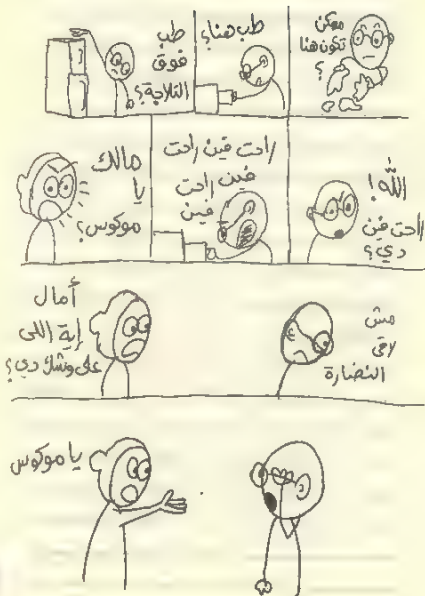 ممكن
تكون هنا
؟
طب هنا؟
طب
فوق
التلاجة؟
الله!
راحت فين
دي؟
راحت فين راحت
فين راحت
فين
مالك
يا
موكوس؟
مش
لاقي
النضارة
أمال
إية اللي
على وشك دي؟
يا موكوس